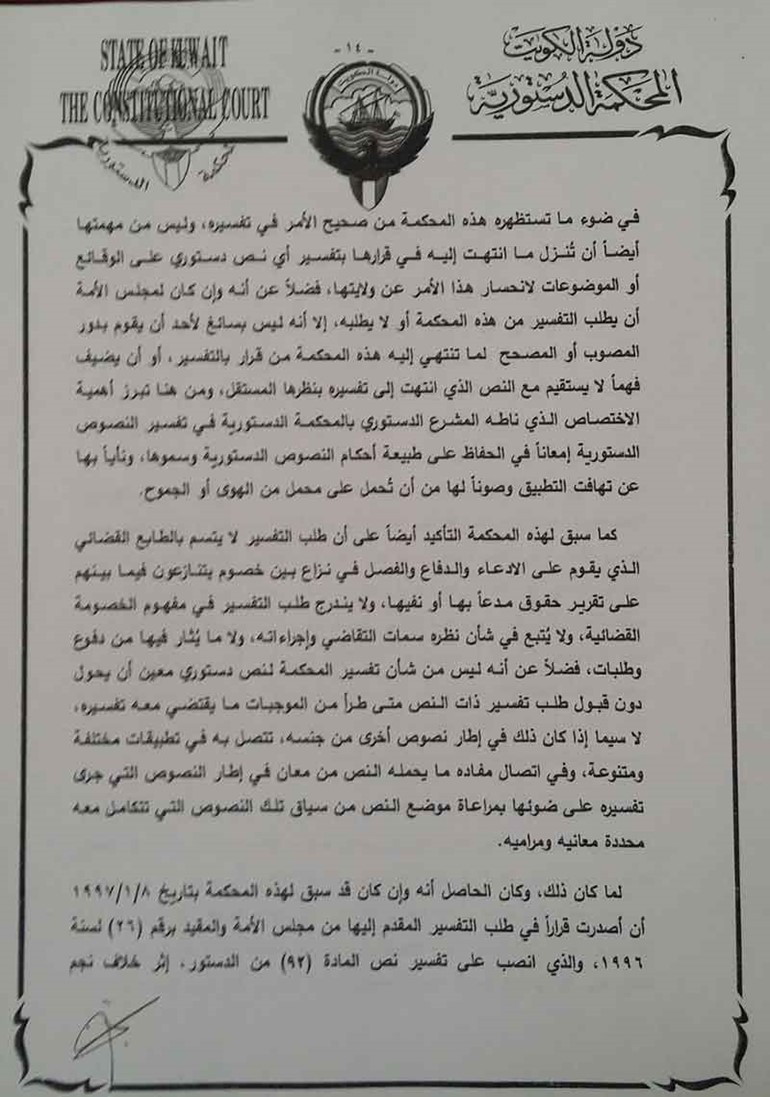 STATE OF KUWAIT
THE CONSTITUTIONAL COURT
- ١٤ -
دولة الكويت
دولة الكويت
المحكمة الدستورية
المحكمة الدستورية
في ضوء ما تستظهره هذه المحكمة من صحيح الأمر في تفسيره، وليس من مهمتها
أيضاً أن تُنزل ما انتهت إليه في قرارها بتفسير أي نص دستوري على الوقائع
أو الموضوعات لانحسار هذا الأمر عن ولايتها، فضلاً عن أنه وإن كان لمجلس الأمة
أن يطلب التفسير من هذه المحكمة أو لا يطلبه، إلا أنه ليس بسائغ لأحد أن يقوم بدور
المصوب أو المصحح لما تنتهي إليه هذه المحكمة من قرار بالتفسير، أو أن يضيف
فهماً لا يستقيم مع النص الذي انتهت إلى تفسيره بنظرها المستقل، ومن هنا تبرز أهمية
الاختصاص الذي ناطه المشرع الدستوري بالمحكمة الدستورية في تفسير النصوص
الدستورية إمعاناً في الحفاظ على طبيعة أحكام النصوص الدستورية وسموها، ونأياً بها
عن تهافت التطبيق وصوناً لها من أن تُحمل على محمل من الهوى أو الجموح.
كما سبق لهذه المحكمة التأكيد أيضاً على أن طلب التفسير لا يتسم بالطابع القضائي
الذي يقوم على الادعاء والدفاع والفصل في نزاع بين خصوم يتنازعون فيما بينهم
على تقرير حقوق مدعاً بها أو نفيها، ولا يندرج طلب التفسير في مفهوم الخصومة
القضائية، ولا يُتبع في شأن نظره سمات التقاضي وإجراءاته، ولا ما يُثار فيها من دفوع
وطلبات، فضلاً عن أنه ليس من شأن تفسير المحكمة لنص دستوري معين أن يحول
دون قبول طلب تفسير ذات النص متى طرأ من الموجبات ما يقتضي معه تفسيره،
لا سيما إذا كان ذلك في إطار نصوص أخرى من جنسه، تتصل به في تطبيقات مختلفة
ومتنوعة، وفي اتصال مفاده ما يحمله النص من معان في إطار النصوص التي جرى
تفسيره على ضوئها بمراعاة موضع النص من سياق تلك النصوص التي تتكامل معه
محددة معانيه ومراميه.
لما كان ذلك، وكان الحاصل أنه وإن كان قد سبق لهذه المحكمة بتاريخ ١٩٩٧/١/٨
أن أصدرت قراراً في طلب التفسير المقدم إليها من مجلس الأمة والمقيد برقم (٢٦) لسنة
١٩٩٦، والذي انصب على تفسير نص المادة (٩٢) من الدستور، إثر خلاف نجم